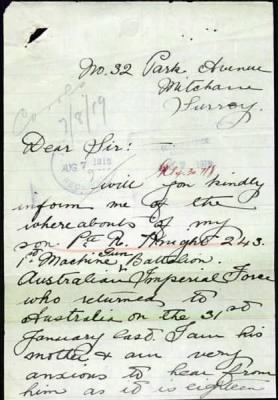 No. 32 Park Avenue
Mitcham
Surrey.
7/8/19
AUG 7 1919
Dear Sir:
will you kindly
inform me of the
whereabouts of my
son Pte R. 243.
1st Machine Gun Battalion.
Australian Imperial Force
who returned to
Australia on the 31st
January last. I am his
mother & am very
anxious to hear from
him as it is eighteen